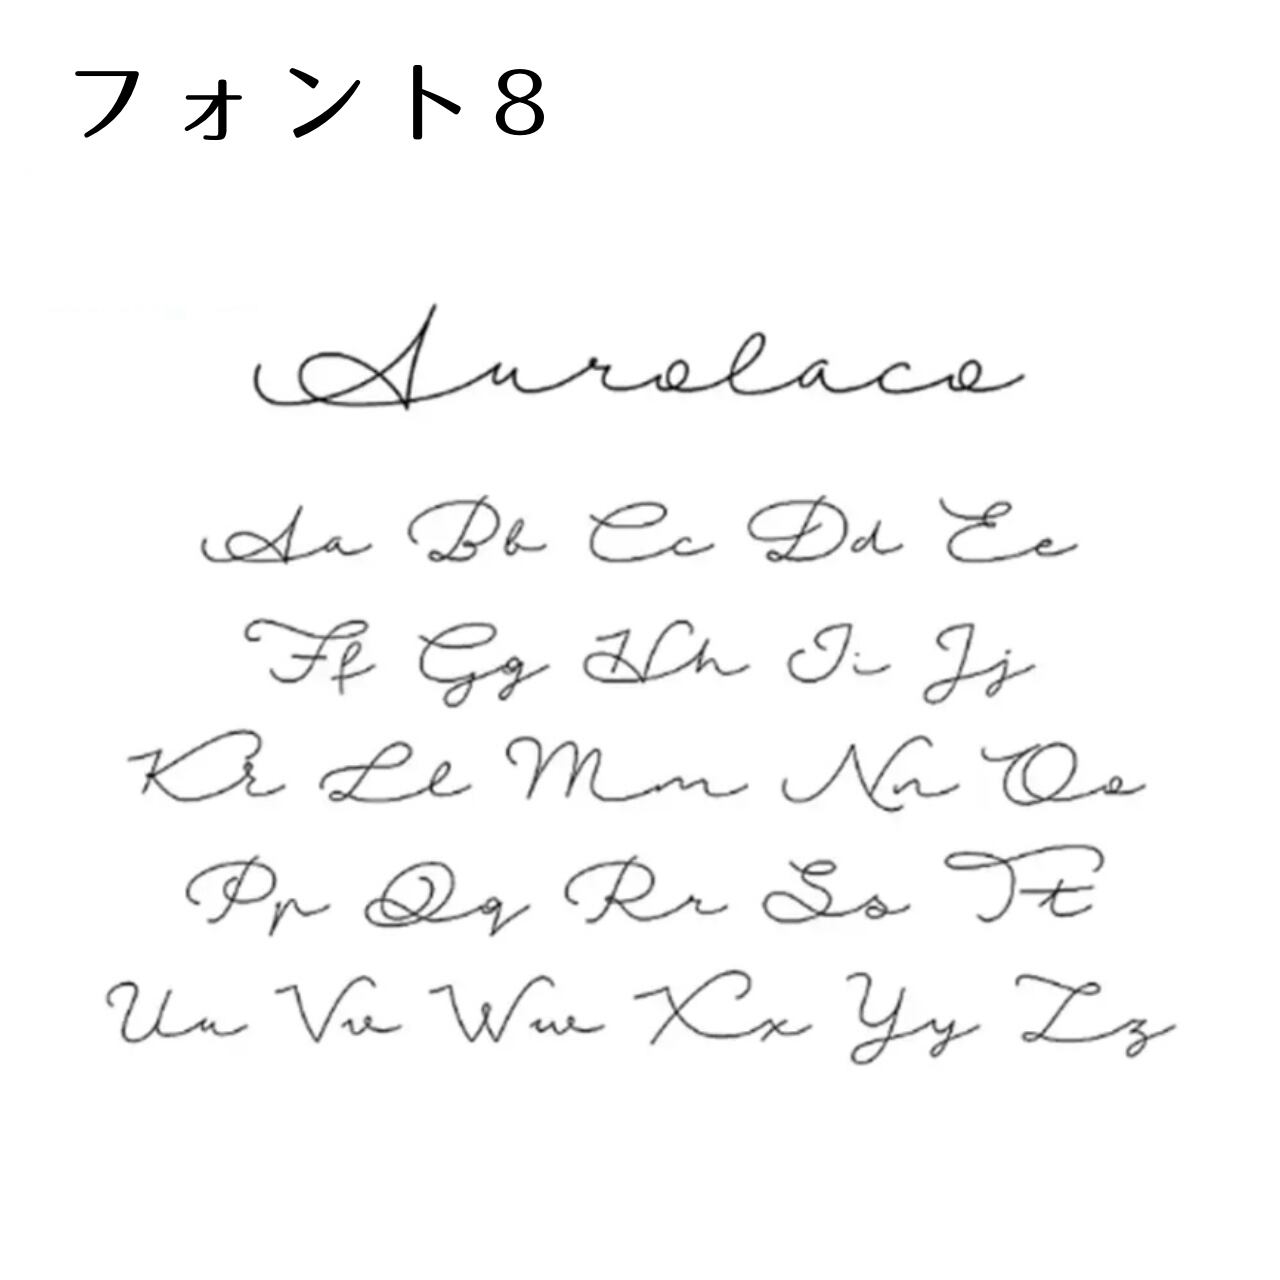 フォント8
Aurolaco
Aa Bb Cc Dd Ee
Ff Gg Hh Ii Jj
Kk Ll Mm Nn Oo
Pp Qq Rr Ss Tt
Uu Vv Ww Xx Yy Zz